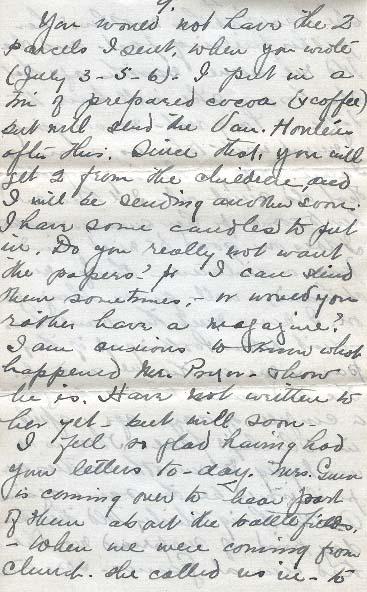 9.
You would not have the 2
parcels I sent, when you wrote
(July 3-5-6). I put in a
tin of prepared cocoa (& coffee)
but will send the Van. Houten's
after this. Since that, you will
get 2 from the children, and
I will be sending another soon.
I have some candles to put
in. Do you really not want
the papers? I can send
them sometimes, - or would you
rather have a magazine?
I am anxious to know what
happened Mr. Pryor - & how
he is. Have not written to
her yet - but will soon -
I feel so glad having had
your letters to-day. Mrs.
is coming over to hear part
of them about the battlefields.
- When we were coming from
church. She called us in - to